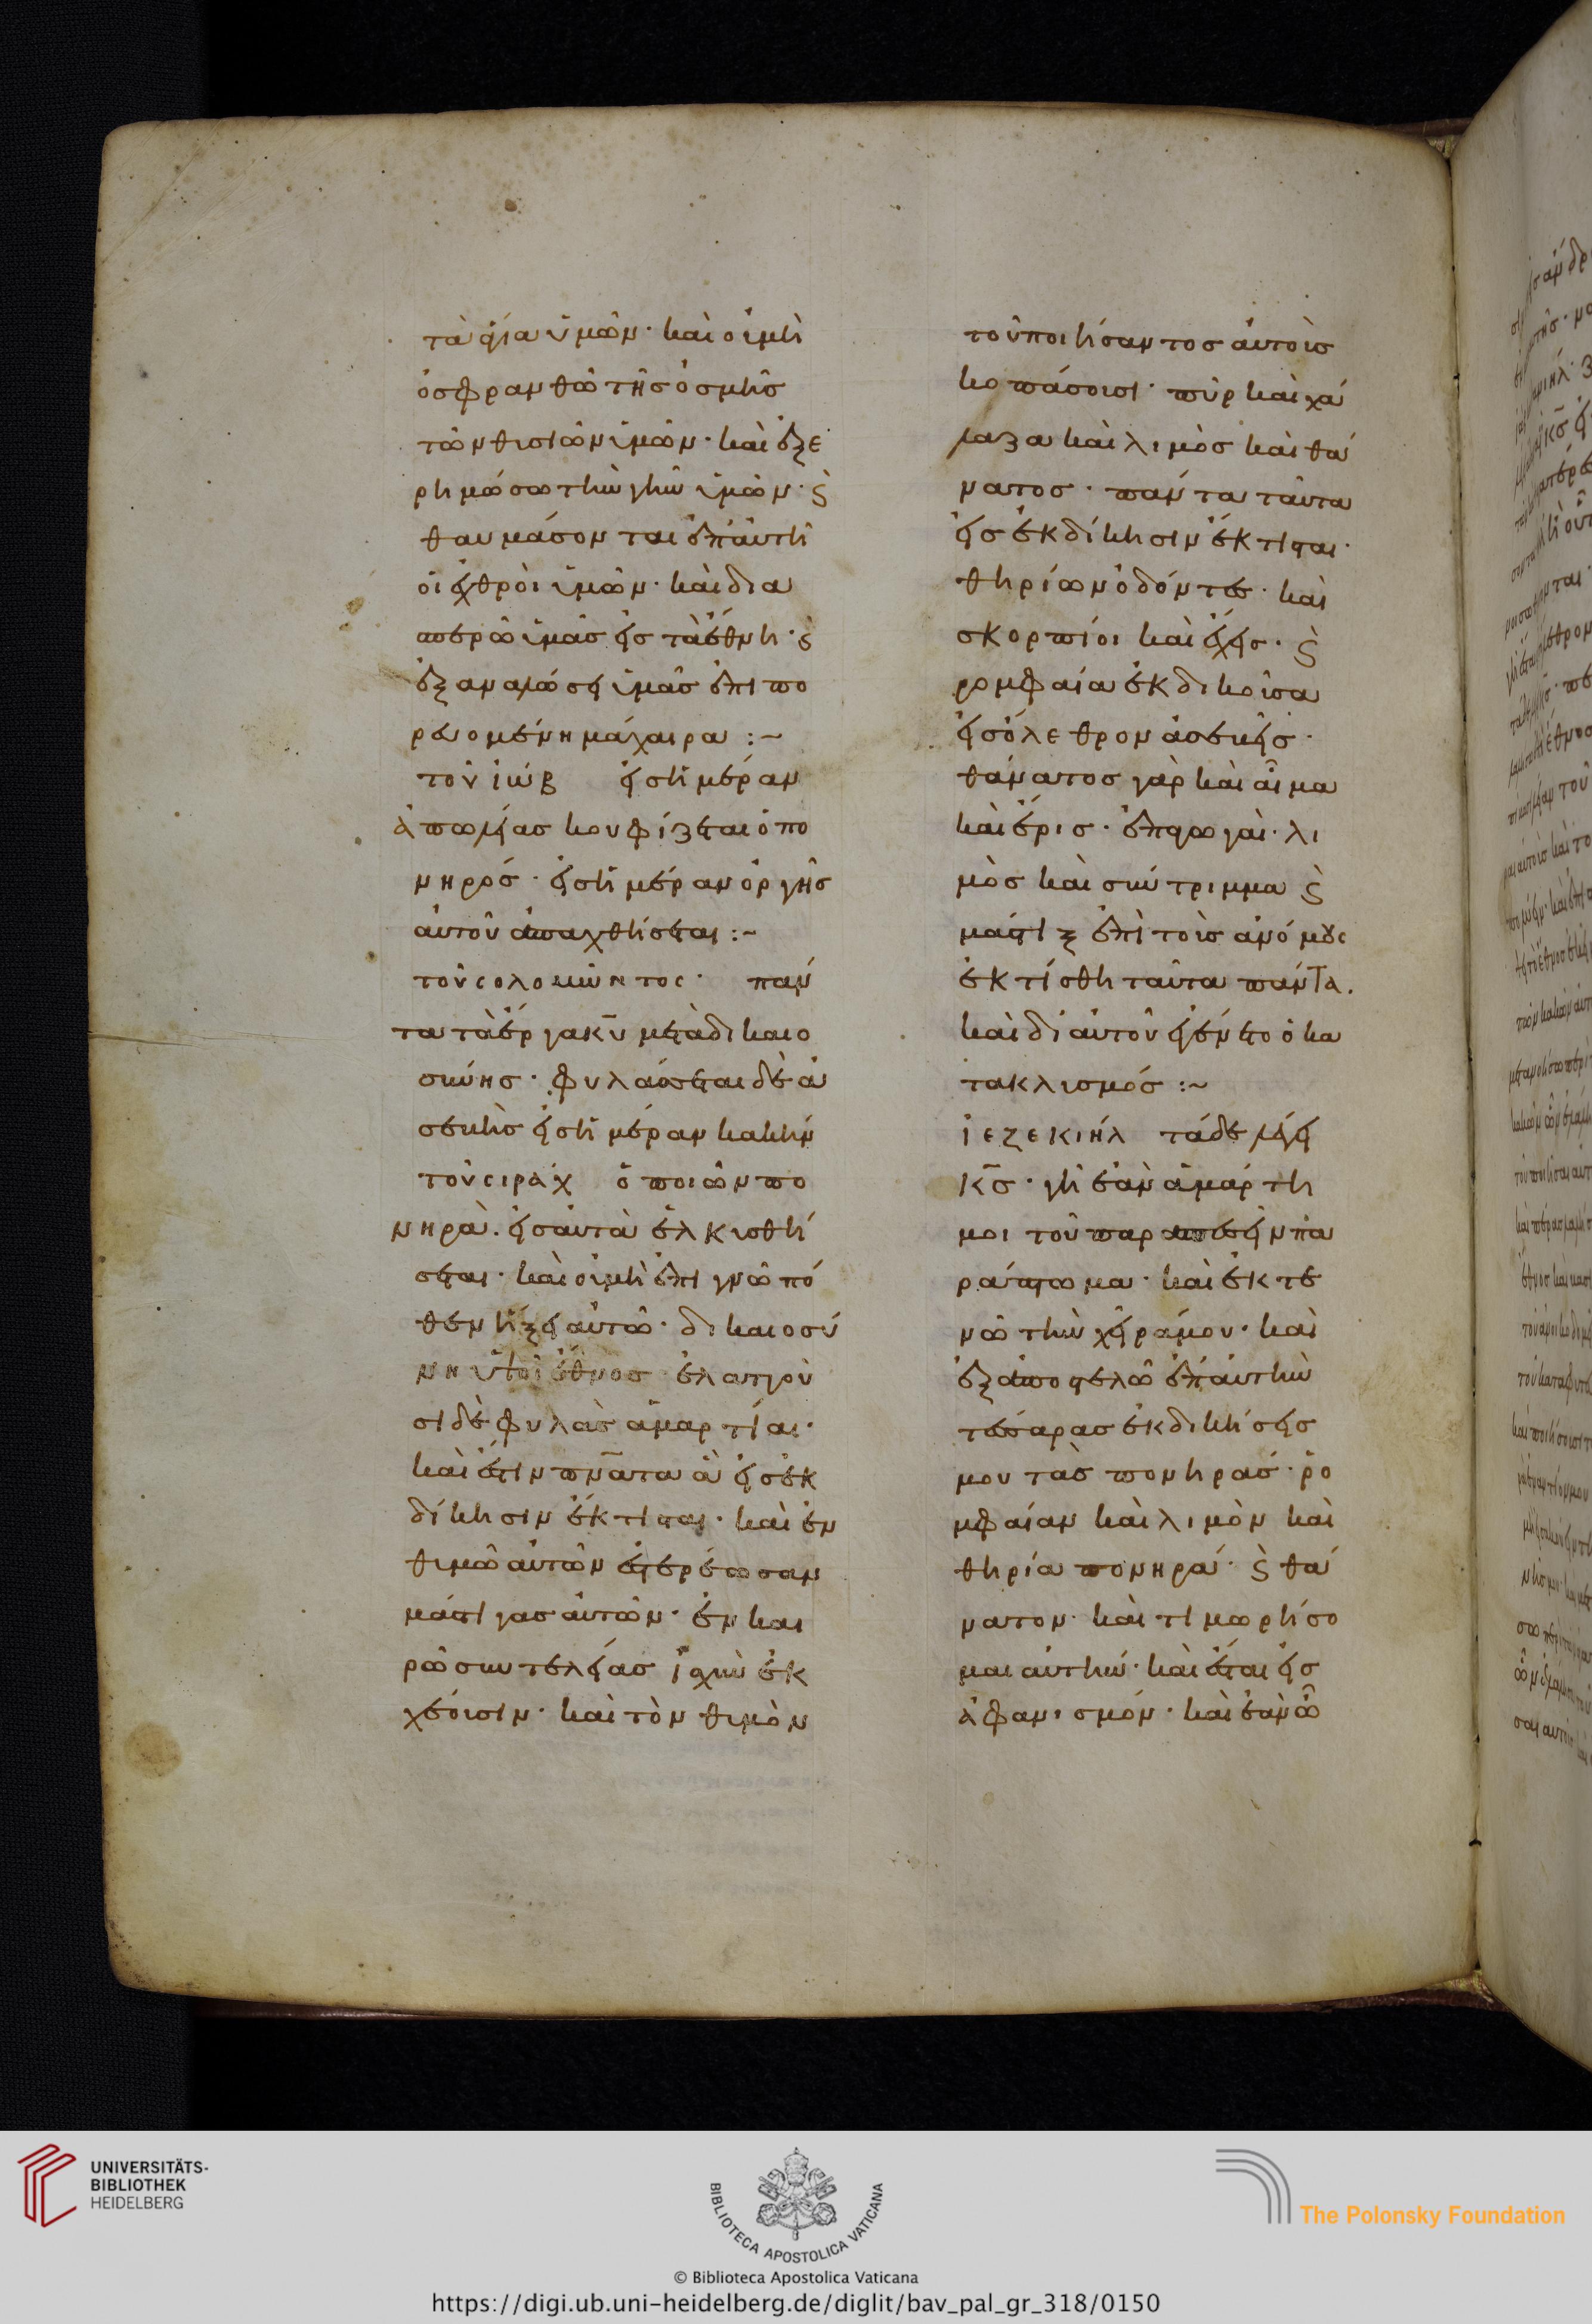 τὰ ἅγια ὑμῶν· καὶ οὐ μὴ
ὀσφρανθῶ τῆς ὀσμῆς
τῶν θυσιῶν ὑμῶν· καὶ ἐξε
ρημώσω τὴν γῆν ὑμῶν· ϛ̀
θαυμάσονται ἐπ' αὐτῆ
οἱ ἐχθροὶ ὑμῶν· καὶ δια
σπερῶ ὑμᾶς εἰς τὰ ἔθνη· ϛ̀
ἐξαναλώσει ὑμᾶς ἐπιπο
ρευομένη μάχαιρα :~
τοῦ ἰώβ εἰς ἡμέραν
ἀπωλείας κουφίζεται ὁ πο
νηρός· εἰς ἡμέραν ὀργῆς
αὐτοῦ ἀπαχθήσεται :~
τοῦ σολομῶντος· πάν
τα τὰ ἔργα κ̅υ̅ μετὰ δικαιο
σύνης· φυλάσσεται δὲ ἀ
σεβὴς εἰς ἡμέραν κακήν
τοῦ σιράχ ὁ ποιῶν πο
νηρὰ. εἰς αὐτὰ ἐλκυσθή
σεται· καὶ οὐ μὴ ἐπιγνῶ πό
θεν ἥξει αὐτῶ· δικαιοσύ
νη ὑψοῖ ἔθνος ἐλαττονοῦ
σι δὲ φυλὰς ἁμαρτίαι·
καὶ ἔστιν πν̅ατα ἃ εἰς ἐκ
δίκησιν ἔκτισται· καὶ ἐν
θυμῶ αὐτῶν ἐστερέωσαν
μάστιγας αὐτῶν· ἐν και
ρῶ συντελείας ἰσχὺν ἐκ
χέουσιν· καὶ τὸν θυμὸν
τοῦ ποιήσαντος αὐτοὺς
κοπάσουσι· πῦρ καὶ χά
λαζα καὶ λιμὸς καὶ θά
νατος· πάντα ταῦτα
εἰς ἐκδίκησιν ἔκτισται·
θηρίων ὀδόντες· καὶ
σκορπίοι καὶ ἔχεις· ϛ̀
ρομφαία ἐκδικοῦσα
εἰς ὄλεθρον ἀσεβεῖς·
θάνατος γὰρ καὶ αἷμα
καὶ ἔρις· ἐπαγωγαὶ· λι
μὸς καὶ σύντριμμα ϛ̀
μάστιξ ἐπὶ τοὺς ἀνόμους
ἐκτίσθη ταῦτα πάντα.
καὶ δι' αὐτοῦ ἐγένετο ὁ κα
τακλυσμός :~
ἰεζεκιήλ τάδε λέγει
κ̅ς̅· γῆ ἐὰν ἁμάρτη
μοι τοῦ παραπεσεῖν πα
ράπτωμα· καὶ ἐκτε
νῶ τὴν χεῖρά μου· καὶ
ἐξαποστελῶ ἐπ' αὐτὴν
τέσσαρας ἐκδικήσεις
μου τὰς πονηράς· ῥο
μφαίαν καὶ λιμὸν καὶ
θηρία πονηρά· ϛ̀ θά
νατον· καὶ τιμωρήσο
μαι αὐτήν· καὶ ἔσται εἰς
ἀφανισμόν· καὶ ἐὰν ὦ
UNIVERSITÄTS-
BIBLIOTHEK
HEIDELBERG
BIBLIOTECA APOSTOLICA VATICANA
The Polonsky Foundation
© Biblioteca Apostolica Vaticana
https://digi.ub.uni-heidelberg.de/diglit/bav_pal_gr_318/0150